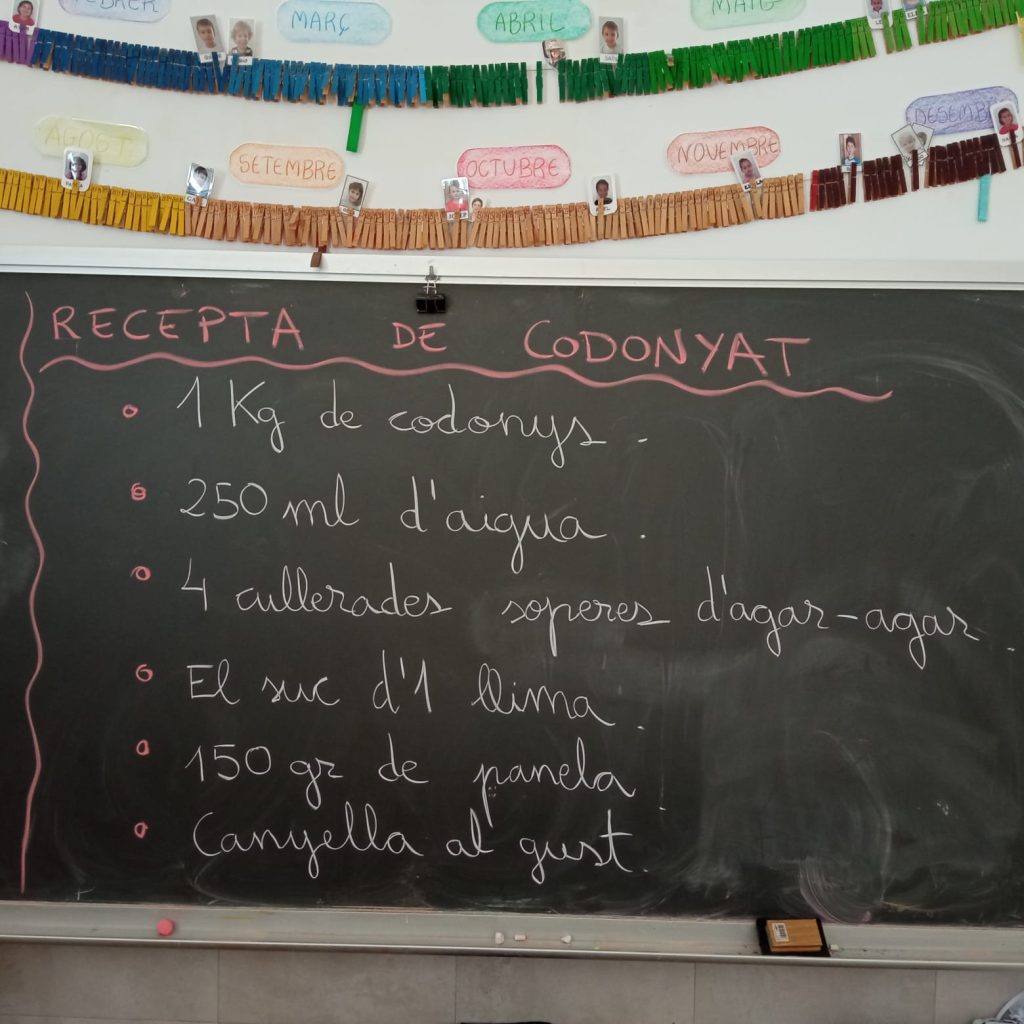 FEBRER
MARÇ
ABRIL
MAIG
AGOST
SETEMBRE
OCTUBRE
NOVEMBRE
DESEMB
RECEPTA DE CODONYAT
1 Kg de codonys.
250 ml d'aigua.
4 cullerades soperes d'agar-agar.
El suc d'1 llima.
150 gr de panela.
Canyella al gust.